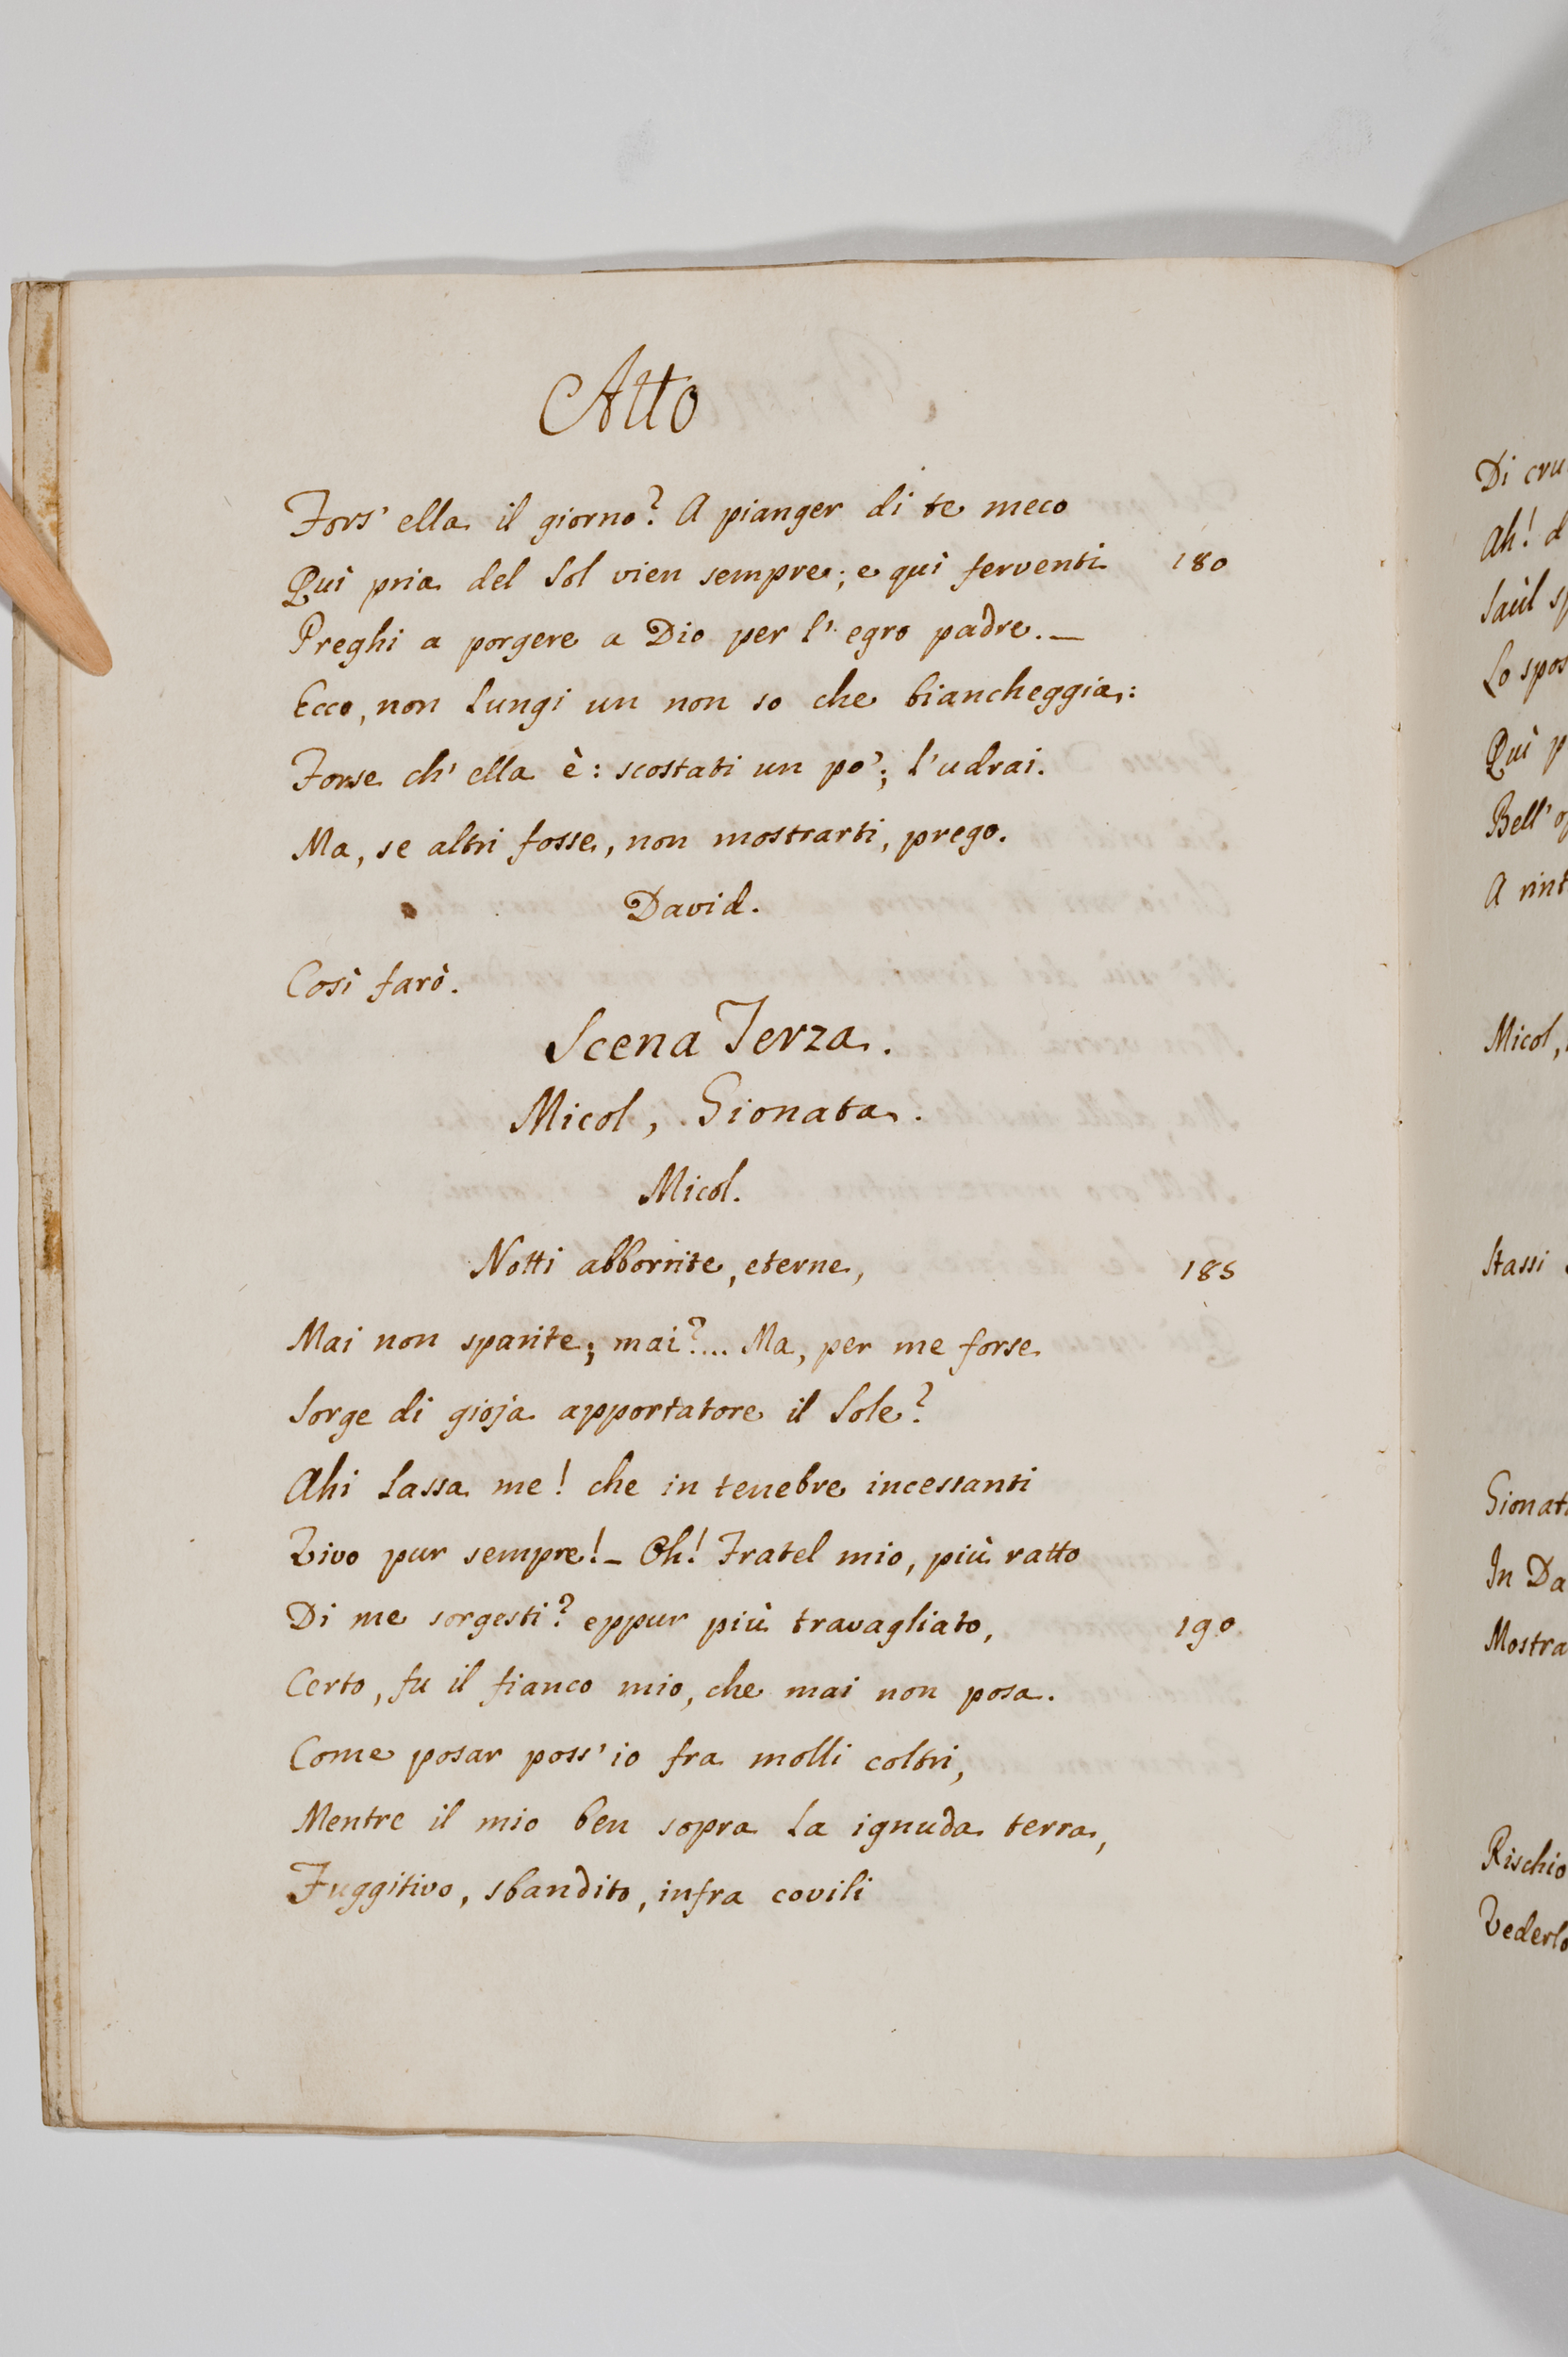 Atto
Fors' ella il giorno? A pianger di te meco
Quì pria del Sol vien sempre; e quì ferventi 180
Preghi a porgere a Dio per l'egro padre. —
Ecco, non lungi un non so che biancheggia:
Forse ch' ella è: scostati un po'; l'udrai.
Ma, se altri fosse, non mostrarti, prego.
David.
Così farò.
Scena Terza.
Micol, Gionata.
Micol.
Notti abborrite, eterne, 185
Mai non sparite; mai?... Ma, per me forse
Sorge di gioja apportatore il Sole?
Ahi lassa me! che in tenebre incessanti
Vivo pur sempre! — Oh! Fratel mio, più ratto
Di me sorgesti? eppur più travagliato, 190
Certo, fu il fianco mio, che mai non posa.
Come posar poss'io fra molli coltri,
Mentre il mio ben sopra la ignuda terra,
Fuggitivo, sbandito, infra covili
Di cru
Ah! d
Saùl s
Lo spos
Quì p
Bell' o
A rint
Micol,
Stassi
Gionat
In Da
Mostra
Rischio
Vederlo